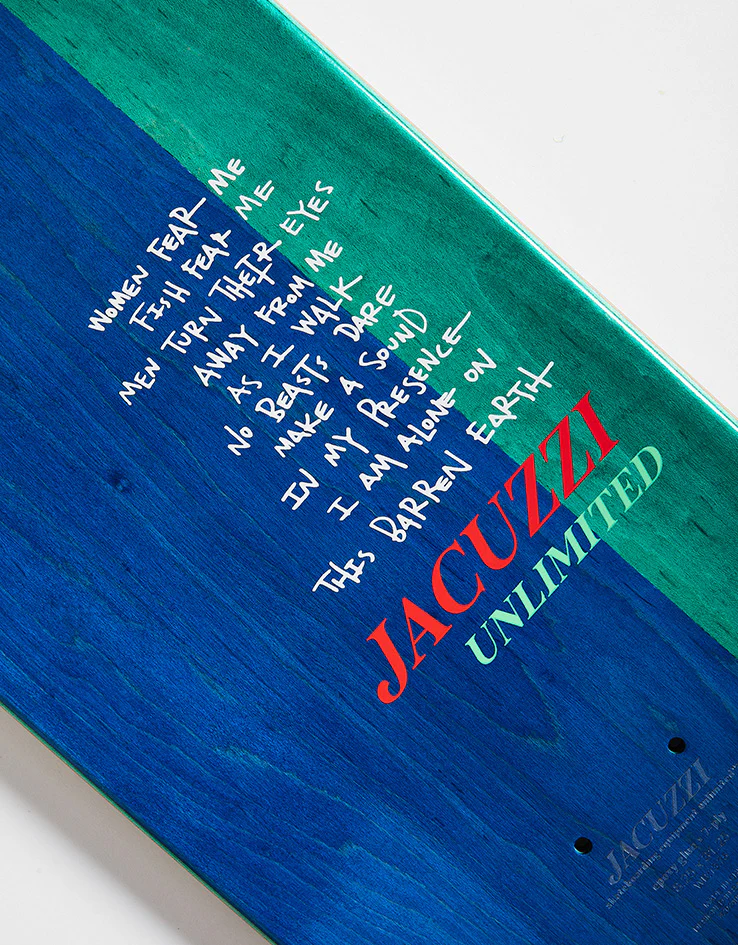 WOMEN FEAR ME
FISH FEAR ME
MEN TURN THEIR EYES
AWAY FROM ME
AS I WALK
NO BEASTS DARE
MAKE A SOUND
IN MY PRESENCE
I AM ALONE ON
THIS BARREN EARTH
JACUZZI
UNLIMITED
JACUZZI
skateboarding equipment unlimited